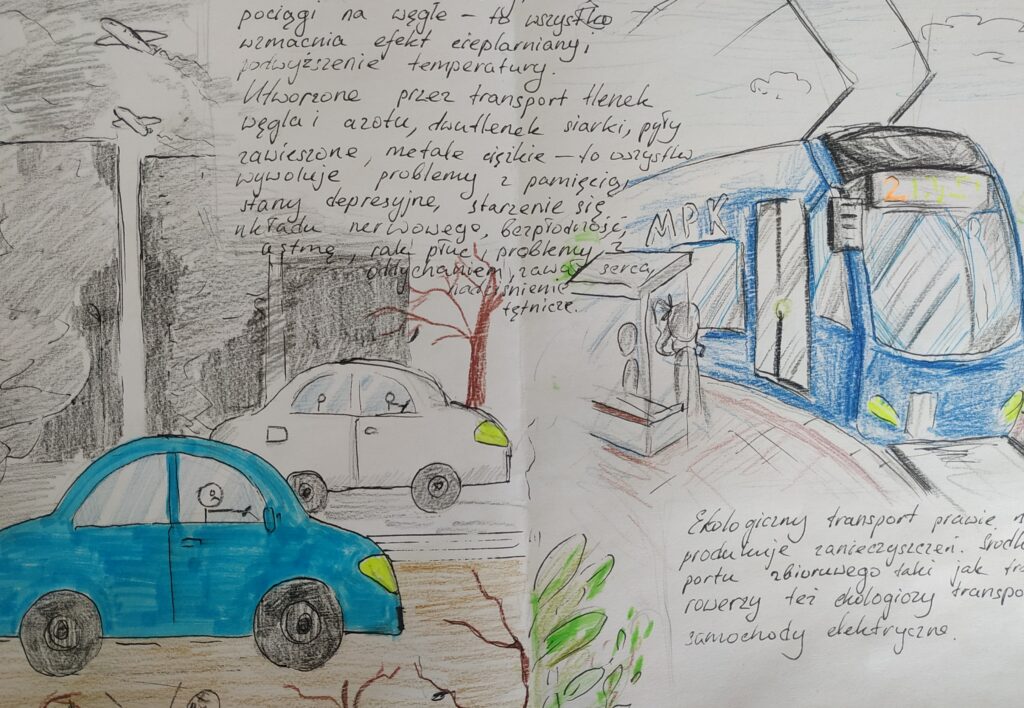 pociągi na węgle – to wszystko
wzmacnia efekt cieplarniany,
podwyższenie temperatury.
Utworzone przez transport tlenek
węgla i azotu, dwutlenek siarki, pyły
zawieszone, metale ciężkie – to wszystko
wywołuje problemy z pamięcią,
stany depresyjne, starzenie się
układu nerwowego, bezpłodność,
astmę, rak płuc, problemy z
oddychaniem, zawał serca,
nadciśnienie
tętnicze.
MPK
2
Ekologiczny transport prawie
produkuje zanieczyszczeń. Środk
portu zbiorowego taki jak tra
rowerzy też ekologiczy transpo
samochody elektryczne.